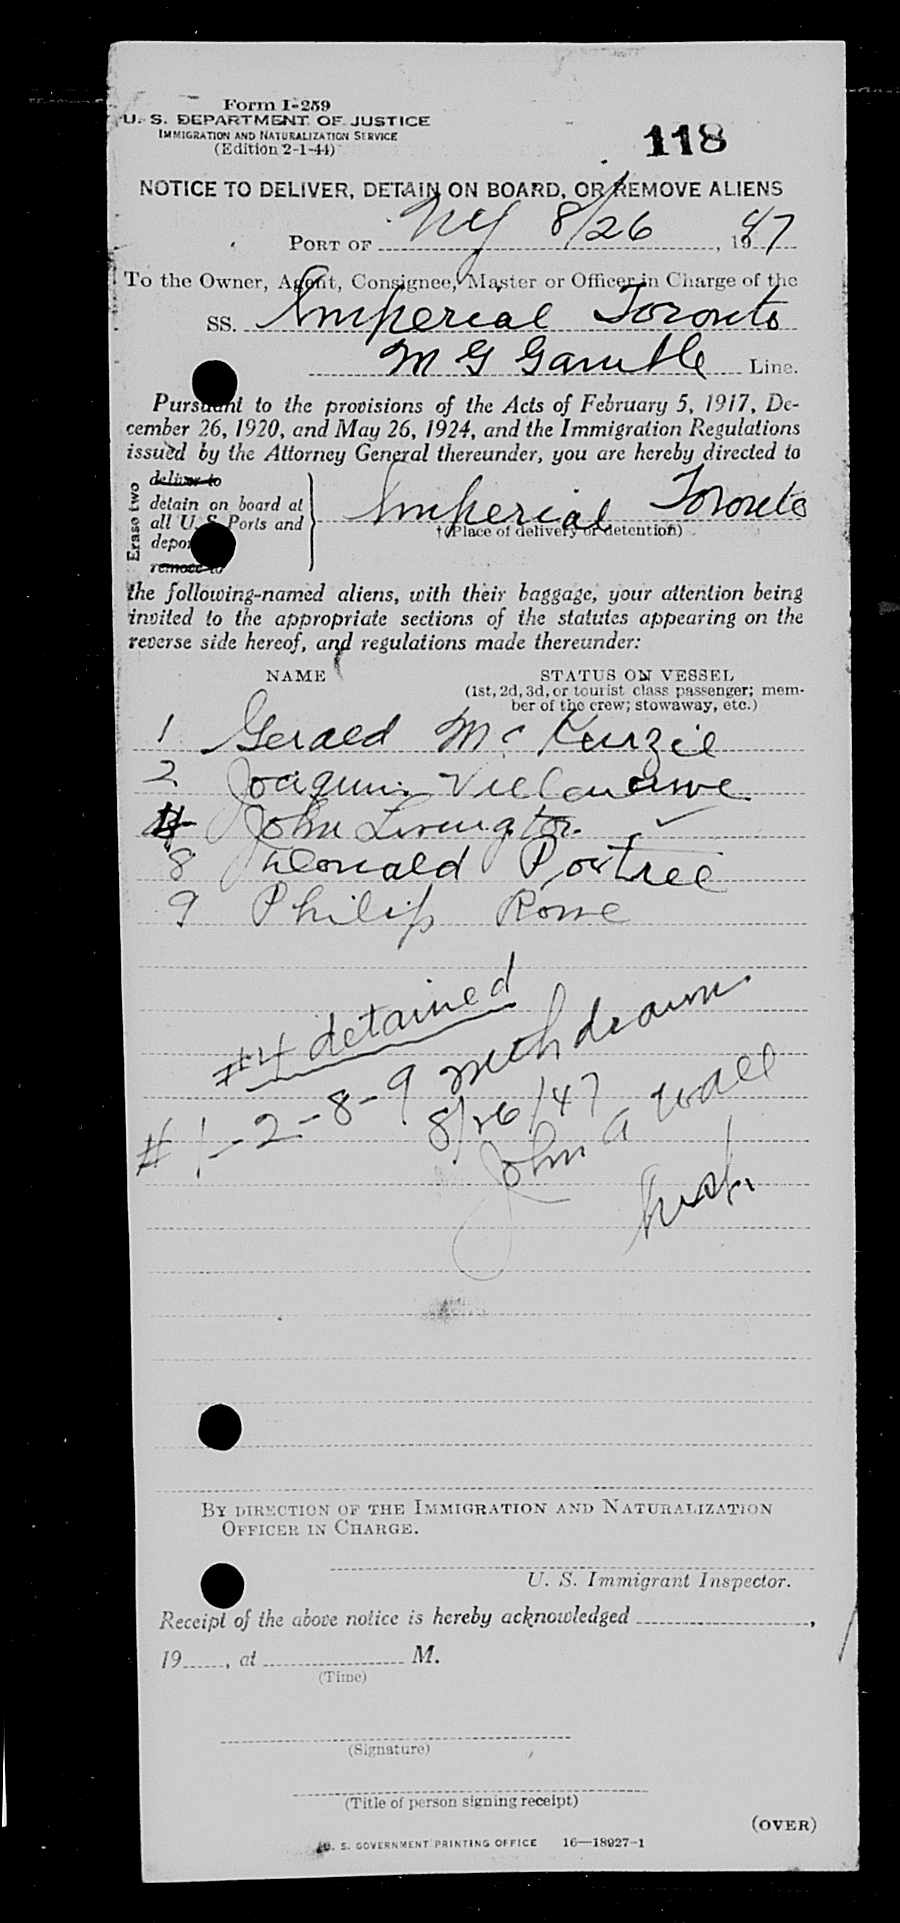 Form I-259
U. S. DEPARTMENT OF JUSTICE
IMMIGRATION AND NATURALIZATION SERVICE
(Edition 2-1-44)
118
NOTICE TO DELIVER, DETAIN ON BOARD, OR REMOVE ALIENS
PORT OF NY 8/26, 1947
To the Owner, Agent, Consignee, Master or Officer in Charge of the
SS. Imperial Toronto
M G Gamble Line.
Pursuant to the provisions of the Acts of February 5, 1917, De-
cember 26, 1920, and May 26, 1924, and the Immigration Regulations
issued by the Attorney General thereunder, you are hereby directed to
Erase two
deliver to
detain on board at
all U. S. Ports and
depor
remove to
Imperial Toronto
†(Place of delivery or detention)
the following-named aliens, with their baggage, your attention being
invited to the appropriate sections of the statutes appearing on the
reverse side hereof, and regulations made thereunder:
NAME STATUS ON VESSEL
(1st, 2d, 3d, or tourist class passenger; mem-
ber of the crew; stowaway, etc.)
1 Gerald McKenzie
2 Joaquin
John Livington ✓
8 Donald Portree
9 Philip Rowe
#4 detained
#1-2-8-9 withdrawn
8/26/47
John A Wall
Insp.
BY DIRECTION OF THE IMMIGRATION AND NATURALIZATION
OFFICER IN CHARGE.
U. S. Immigrant Inspector.
Receipt of the above notice is hereby acknowledged ,
19 , at M.
(Time)
(Signature)
(Title of person signing receipt)
(OVER)
U. S. GOVERNMENT PRINTING OFFICE 16—18927-1